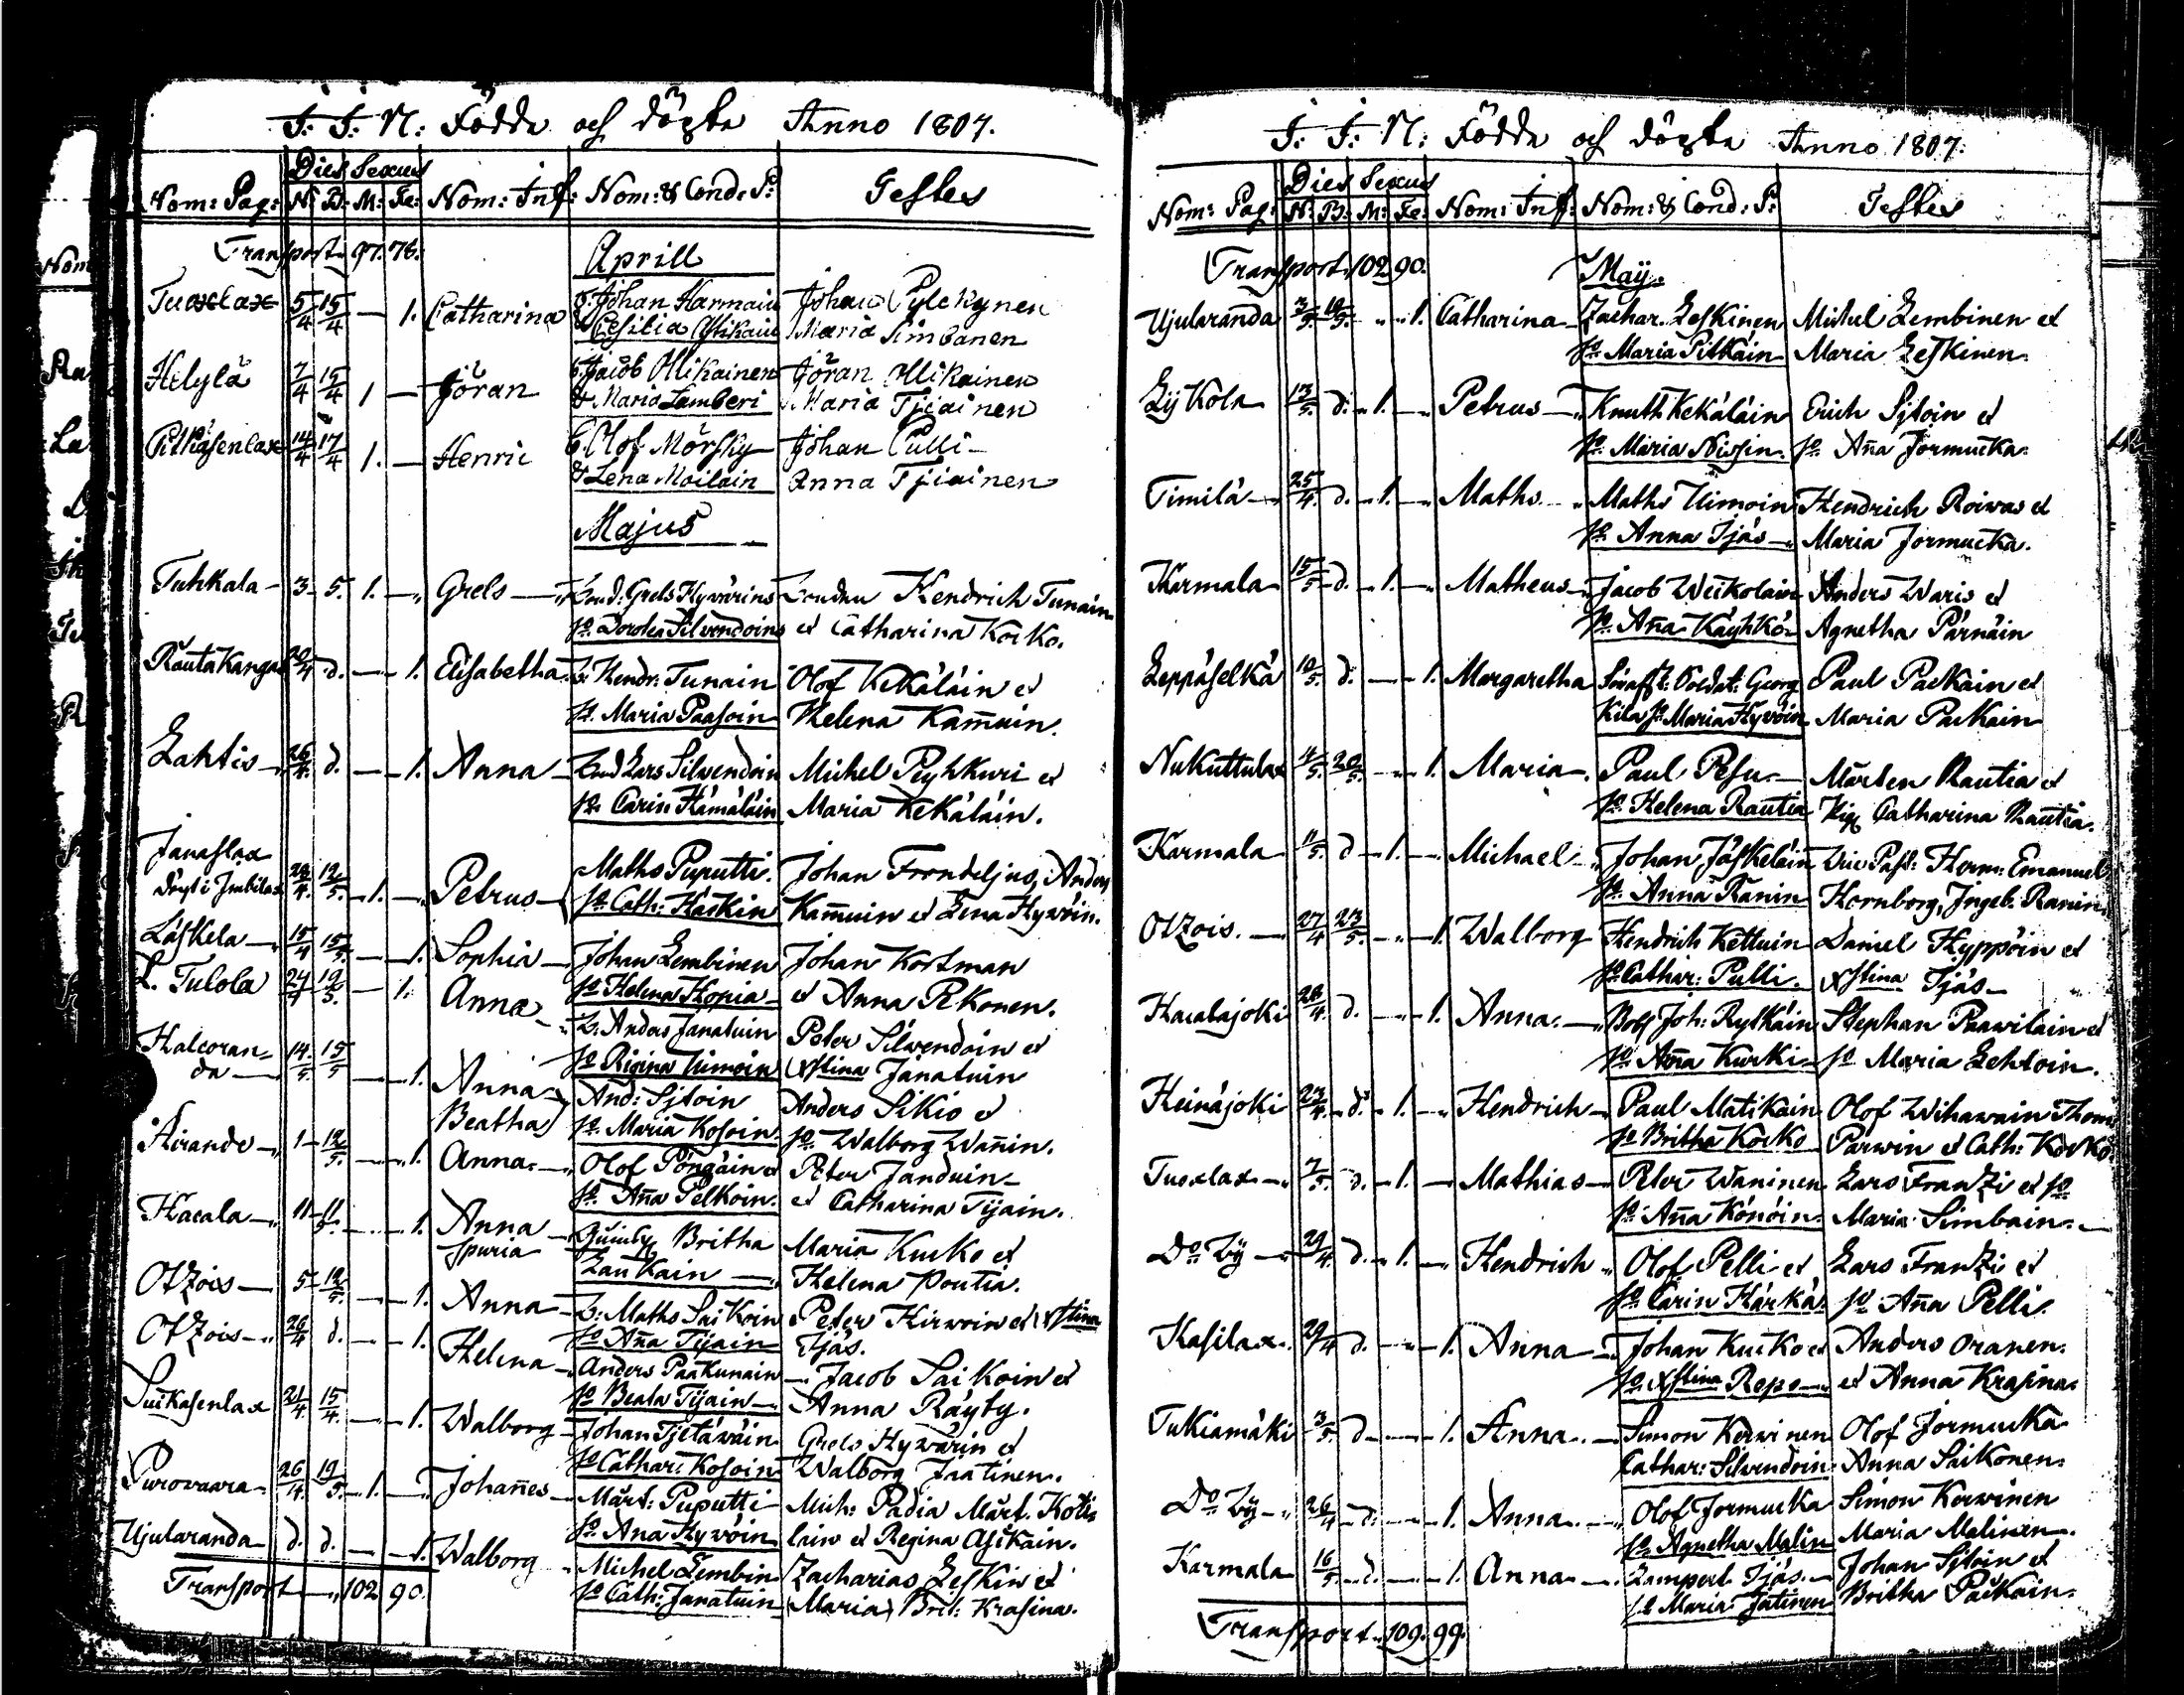 I: I: N: Födde och döpte Anno 1807.
Dies Sexus
Nom: Pag: N: B: M: Fe: Nom: Inf: Nom: & Cond: P: Testes
Transport 97. 78.
Aprill
Tuoxlax 5/4 15/4 — 1. Catharina Johan Harmain Johan Pylckynen
& Cesilia Asikain Maria Simbanen
Helylä 7/4 15/4 1 — Jöran Jacob Ollikainen Jöran Ollikainen
& Maria Lamberi Maria Tjiainen
14/4 17/4 1. — Henric Olof Mörsky Johan Pulli
& Lena Moilain Anna Tjiainen
Majus
Tuhkala 3. 5. 1. — Grels Grels Hyvärins Hendrich Tunain
Dorotea Silvendoins et Catharina Kocko.
Rautakangas 20/4 d. — 1. Elisabetha Hendr: Tunain Olof Kekäläin et
Maria Paasoin Helena Kam̄uin.
Lahtis 26/4 d. — 1. Anna Lars Silvendoin Michel Peyhkuri et
Carin Hämäläin Maria Kekäläin.
Janaslax
28/4 12/5 1. — Petrus Maths Puputti. Johan Frondeljus, Anders
Cath: Häskin Kam̄uin et Lena Hyvöin.
Läskela 15/4 15/5 — 1. Sophia Johan Lembinen Johan Kortman
Helena Hopia et Anna Pekonen.
L. Tulola 24/4 19/5 — 1. Anna Anders Janatuin Peter Silvendoin et
Rigina Uimoin Xstina Janatuin
Halcoran-
da 14/5 15/5 — 1. Anna And: Sjtoin Anders Sikio et
Beatha Maria Kosoin. Walborg Wan̄in.
Kirando 1 12/5 — 1. Anna Olof Pöngäin et Peter Janduin
An̄a Pelkoin. et Catharina Tijain.
Hacala 11 11/5 — 1. Anna Britha Maria Kucko et
spuria Laukain Helena Poutia.
Otzois 5 12/5 — 1. Anna Maths Saikoin Peter Kirwoin et Xstina
An̄a Tijain Tjäs.
Otzois 26/4 d. — 1. Helena Anders Paakunain Jacob Saikoin et
Beata Tijain Anna Räyty.
Suikasenlax 21/4 15/4 — 1. Walborg Johan Tjetäwäin Grels Hyvärin et
Cathar: Kosoin Walborg Jaatinen.
Purovaara 26/4 19/5 1. — Johan̄es Märt: Puputti Mich: Padia Märt. Koti-
Ana Hyvöin lain et Regina Asikain.
Ujularanda d. d. — 1. Walborg Michel Lembin Zacharias Leskin et
Cath: Janatuin Maria Brit: Krasina.
Transport 102 90.
I: I: N: Födde och döpte Anno 1807.
Dies Sexus
Nom: Pag: N: B: M: Fe: Nom: Inf: Nom: & Cond: P: Testes
Transport 102 90.
Maÿ.
Ujularanda 3/5 10/5 — 1. Catharina Zachar. Leskinen Michel Lembinen et
Maria Pitkäin Maria Leskinen.
Lijkola 13/5 d. 1. — Petrus Knuth Kekäläin Erich Sjtoin et
Maria Nissin. An̄a Jormucka.
Timilä 25/4 d. 1. — Maths Maths Uimoin Hendrich Roiwas et
Anna Tjäs Maria Jormucka.
Karmala 15/5 d. 1. — Matheus Jacob Weikolain Anders Waris et
An̄a Käyhkö Agnetha Pärnäin
Leppäselkä 10/5 d. — 1. Margaretha Soldat: Georg Paul Packain et
Kila Maria Hyvöin Maria Packain
Nukuttula 11/5 20/5 — 1. Maria Paul Pesu Mårten Rautia et
Helena Rautia Catharina Rautia.
Karmala 11/5 d 1. — Michael Johan Jäskeläin Vic Past: Herm: Emanuel
Anna Ranin Hornborg, Ingeb. Ranin.
Otzois. 27/4 23/5 — 1. Walborg Hendrich Kettuin Daniel Hyppöin et
Cathar: Pulli. Xstina Tjäs
Hacalajoki 28/4 d. — 1. Anna. Joh: Rytkäin Stephan Paawilain et
An̄a Kurki Maria Lehtoin.
Heinäjoki 23/4 d. 1. — Hendrich Paul Matikain Olof Wihawain Thom:
Britha Kocko Parwin et Cath: Kocko.
Tuoxlax 7/5 d. 1. — Mathias Peter Waninen Lars Frantzi et
An̄a Könöin. Maria Simbain.
Do Bÿ 29/4 d. 1. — Hendrich Olof Pelli et Lars Frantzi et
Carin Härkä. An̄a Pelli.
Kasilax. 29/4 d. — 1. Anna Johan Kucko et Anders Oranen.
Xstina Repo et Anna Krasina.
Tukiamäki 3/5 d. — 1. Anna. Simon Kerwinen Olof Jormucka
Cathar: Silvendoin Anna Saikonen.
Do Bÿ 26/4 d. — 1. Anna. Olof Jormucka Simon Kerwinen
Agnetha Malin Maria Malinen.
Karmala 16/5 d. — 1. Anna Lampert Tjäs. Johan Sjtoin et
Maria Jätinen Britha Packain.
Transport 109. 99.